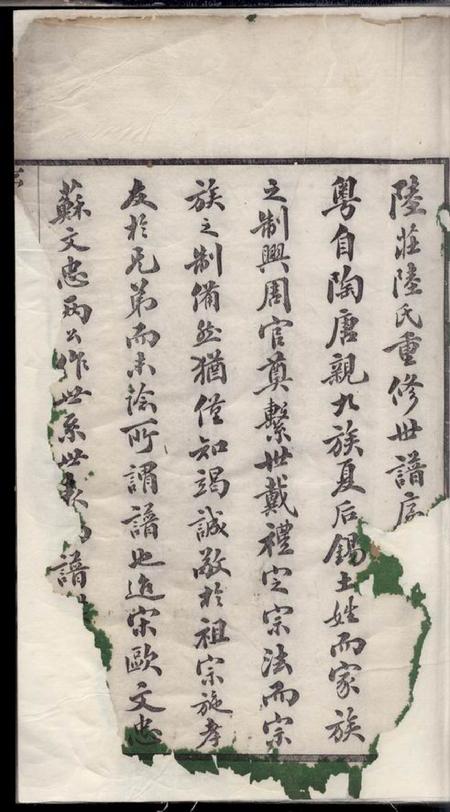 陸莊陸氏重修世譜序
粵自陶唐親九族夏后錫土姓而家族
之制興周官奠繫世戴禮定宗法而宗
族之制備然猶僅知竭誠敬於祖宗施孝
友於兄弟而未論所謂譜也迨宋歐文忠
蘇文忠兩公作世系世 譜